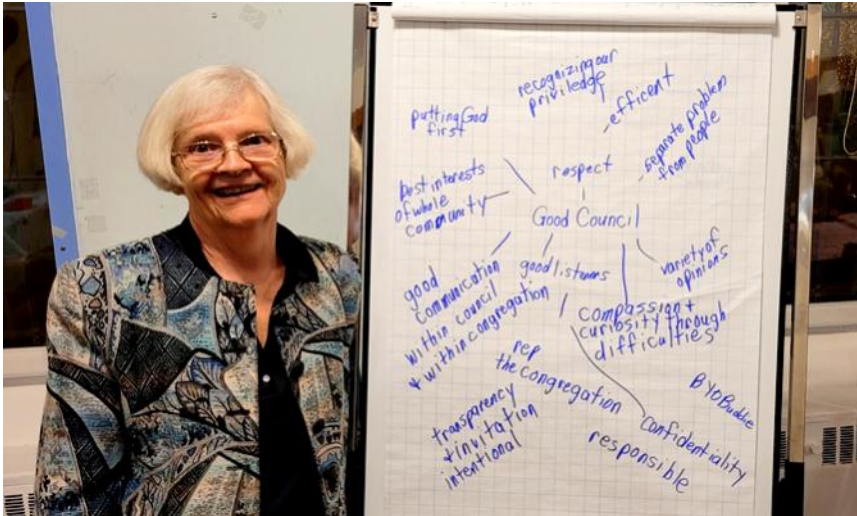 recognizing our
priviledge
efficent
putting God
first
separate problem
from people
respect
best interests
of whole
community
Good Council
variety of
opinions
good listeners
good
communication
within council
+ within congregation
compassion +
curiosity through
difficulties
rep
the congregation
BYOBuddie
transparency
+ invitation
intentional
confidentiality
responsible